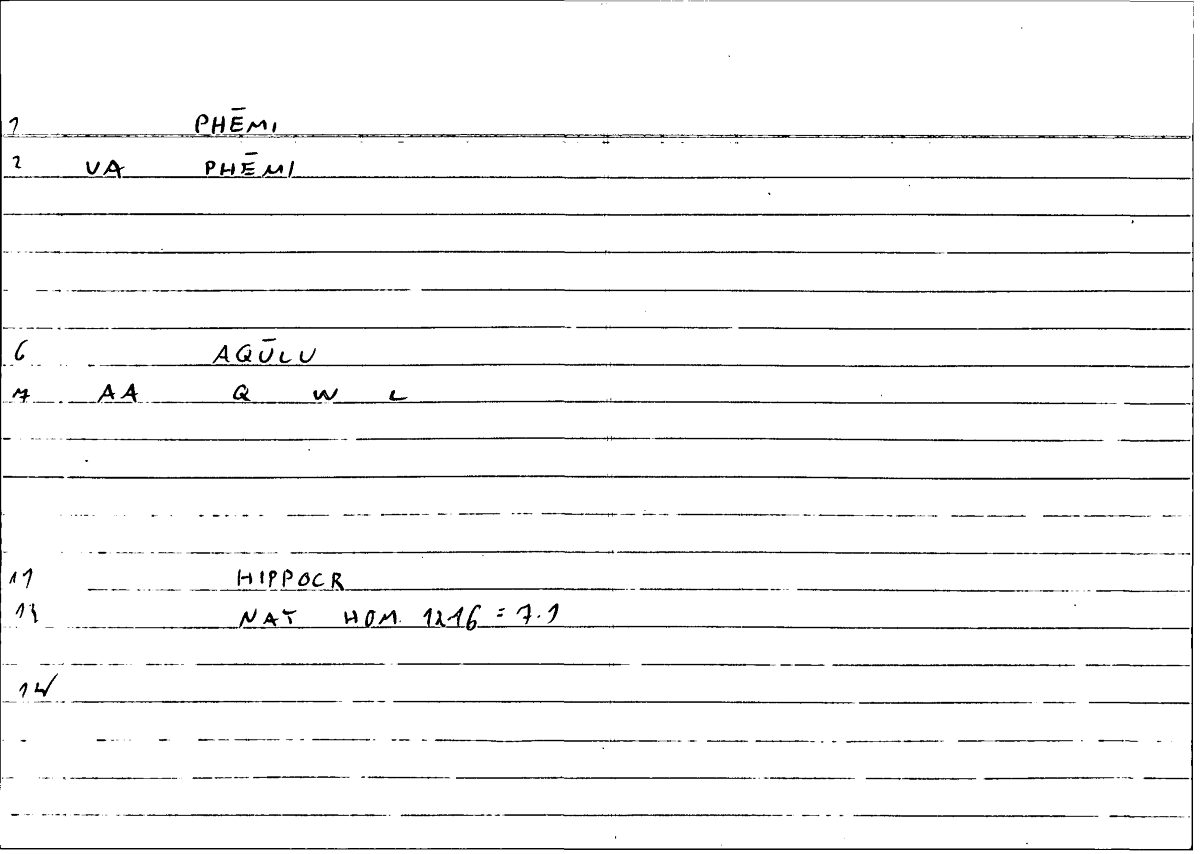 1 PHĒMI
2 VA PHĒMI
6 AQŪLU
7 AA Q W L
11 HIPPOCR
NAT HOM. 1216 = 7.1
14